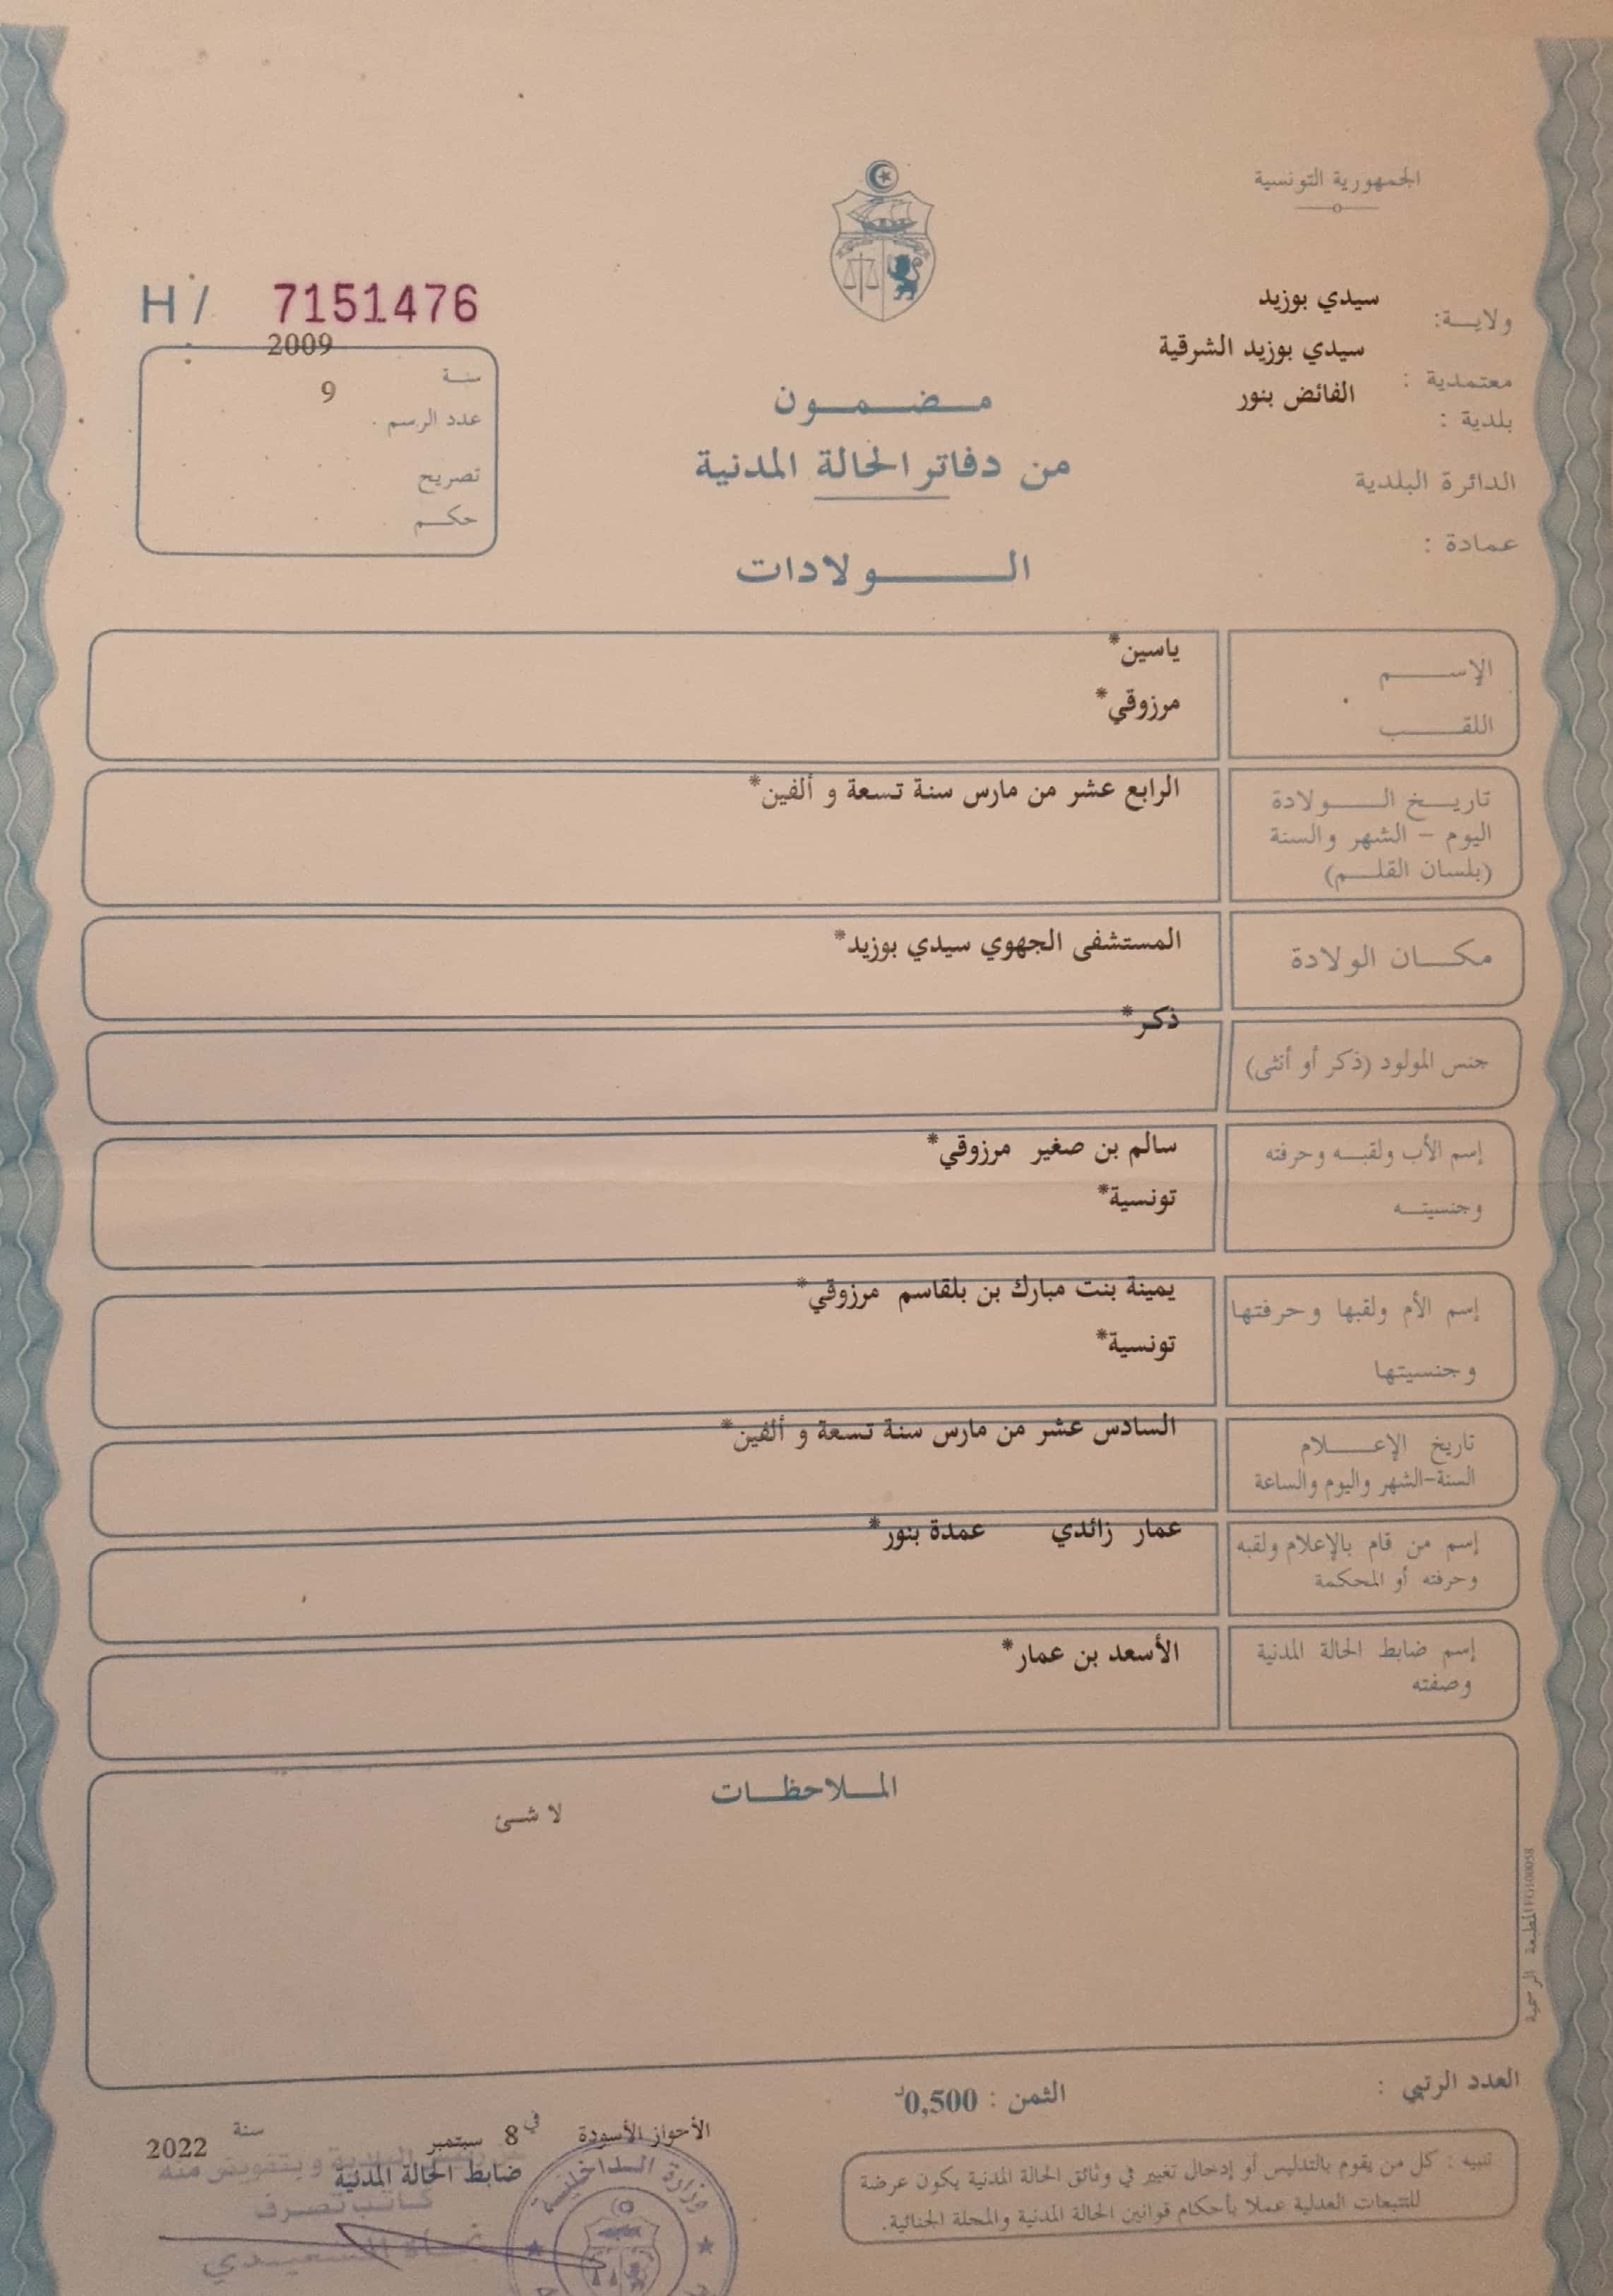 الجمهورية التونسية
ولاية: سيدي بوزيد
معتمدية : سيدي بوزيد الشرقية
بلدية : الفائض بنور
الدائرة البلدية
عمادة :
H / 7151476
سنة 2009
عدد الرسم 9
تصريح
حكم
مضمون
من دفاتر الحالة المدنية
الولادات
الإسم ياسين*
اللقب مرزوقي*
تاريخ الولادة الرابع عشر من مارس سنة تسعة و ألفين*
اليوم - الشهر والسنة
(بلسان القلم)
مكان الولادة المستشفى الجهوي سيدي بوزيد*
جنس المولود (ذكر أو أنثى) ذكر*
إسم الأب ولقبه وحرفته سالم بن صغير مرزوقي*
وجنسيته تونسية*
إسم الأم ولقبها وحرفتها يمينة بنت مبارك بن بلقاسم مرزوقي*
وجنسيتها تونسية*
تاريخ الإعلام السادس عشر من مارس سنة تسعة و ألفين*
السنة-الشهر واليوم والساعة
إسم من قام بالإعلام ولقبه عمار زائدي عمدة بنور*
وحرفته أو المحكمة
إسم ضابط الحالة المدنية الأسعد بن عمار*
وصفته
الملاحظات
لا شئ
المطبعة الرسمية FG100058
العدد الرتبي :
الثمن : 0,500د
الأحواز الأسودة في 8 سبتمبر سنة 2022
ضابط الحالة المدنية
البلدية وبتفويض منه
كاتب تصرف
وزارة الداخلية
تنبيه : كل من يقوم بالتدليس أو إدخال تغيير في وثائق الحالة المدنية يكون عرضة
للتتبعات العدلية عملا بأحكام قوانين الحالة المدنية والمجلة الجنائية.